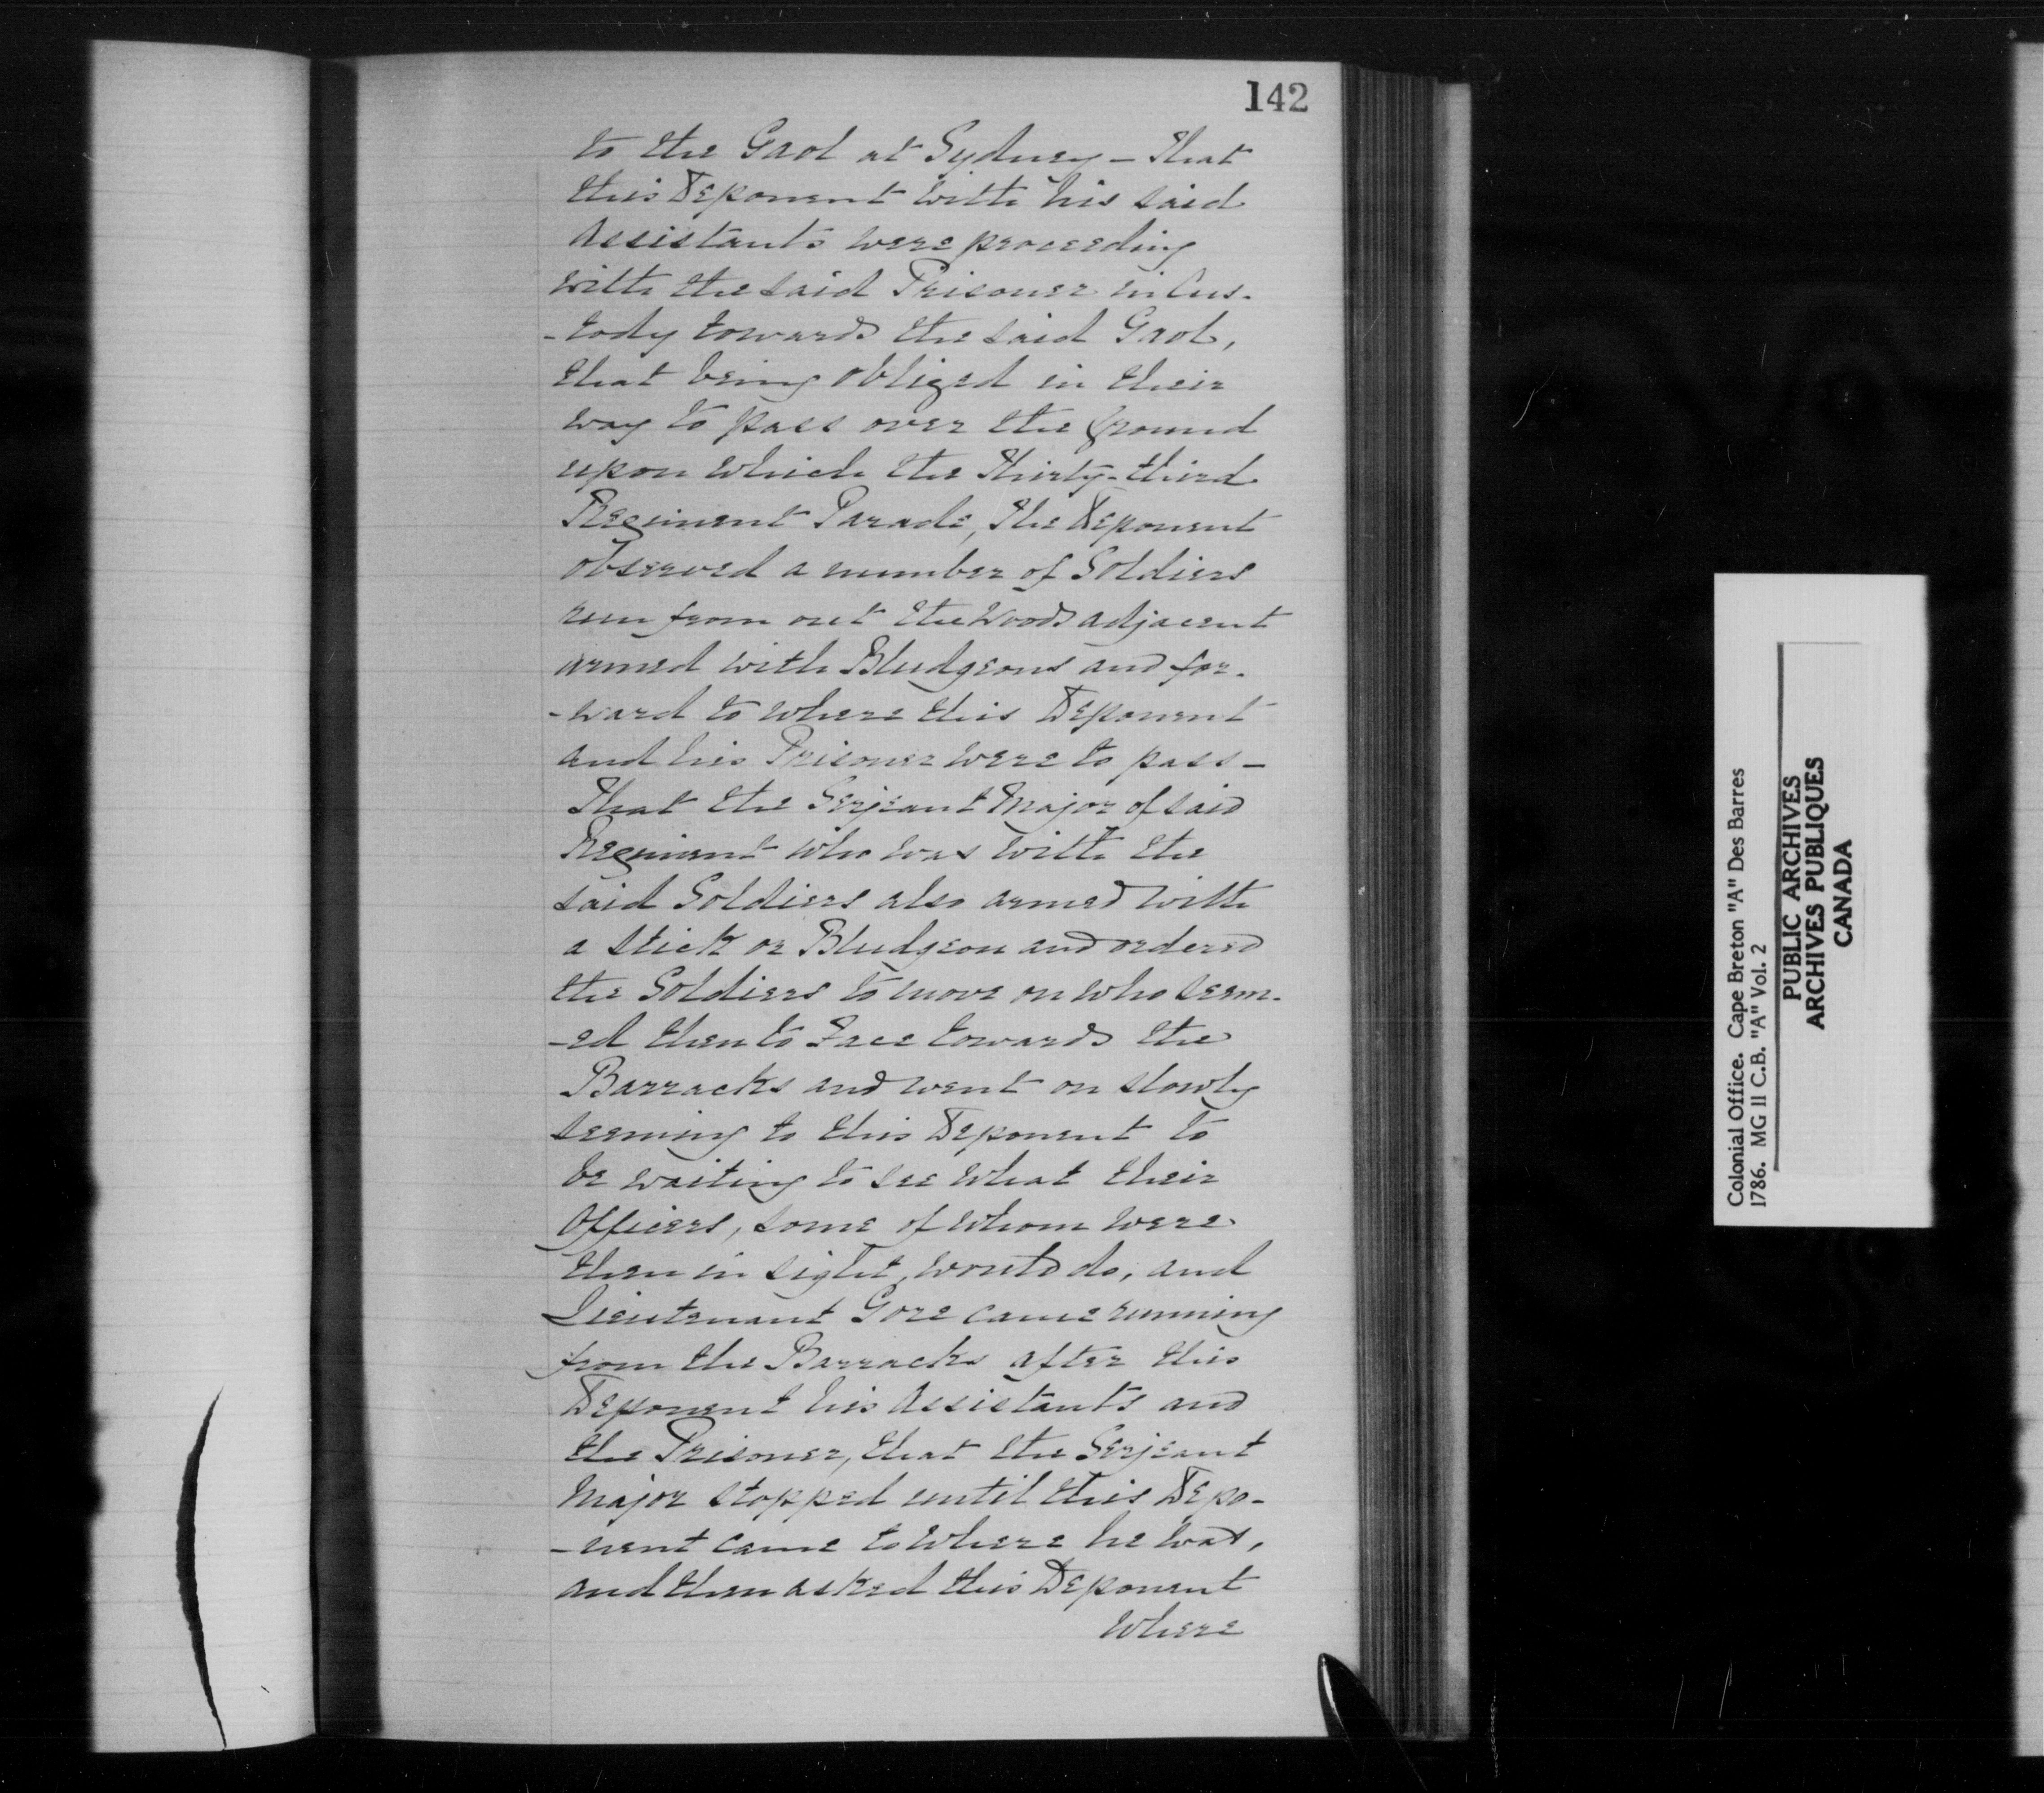 142
to the Gaol at Sydney – That
this Deponent with his said
Assistants were proceeding
with the said Prisoner in Cus-
-tody towards the said Gaol,
that being obliged in their
way to pass over the ground
upon which the Thirty-third
Regiment Parade, the Deponent
observed a number of Soldiers
run from out the Woods adjacent
armed with Bludgeons and for-
-ward to where this Deponent
and his Prisoner were to pass –
That the Serjeant Major of said
Regiment who was with the
said Soldiers also armed with
a stick or Bludgeon and ordered
the Soldiers to move on who seem-
-ed then to Face towards the
Barracks and went on slowly
seeming to this Deponent to
be waiting to see what their
Officers, some of whom were
then in sight, would do, and
Lieutenant Gore came running
from the Barracks after this
Deponent his Assistants and
the Prisoner, that the Serjeant
Major stopped until this Depo-
-nent came to where he was,
and then asked this Deponent
Where
Colonial Office. Cape Breton "A" Des Barres
1786. MG 11 C.B. "A" Vol. 2
PUBLIC ARCHIVES
ARCHIVES PUBLIQUES
CANADA